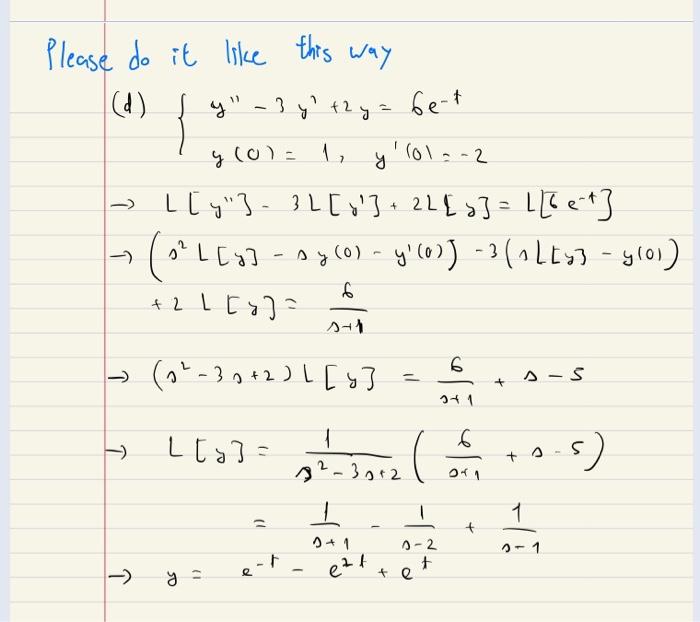 Please do it like this way
(d) { y'' - 3y' + 2y = 6e^-t
y(0) = 1, y'(0) = -2
→ L[y''] - 3L[y'] + 2L[y] = L[6e^-t]
→ (s² L[y] - s y(0) - y'(0)] - 3(s L[y] - y(0))
+ 2 L[y] = 6/(s+1)
→ (s² - 3s + 2) L[y] = 6/(s+1) + s - 5
→ L[y] = 1/(s² - 3s + 2) (6/(s+1) + s - 5)
= 1/(s+1) - 1/(s-2) + 1/(s-1)
→ y = e^-t - e^2t + e^t